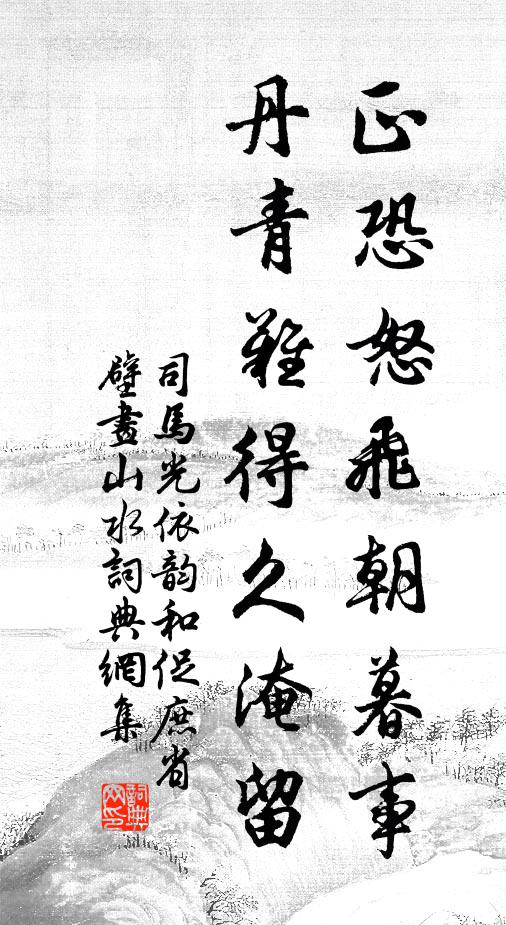 正恐怒飛朝暮事
丹青難得久淹留
司馬光依韵和促庶省
壁畫山水詞典網集
詞典